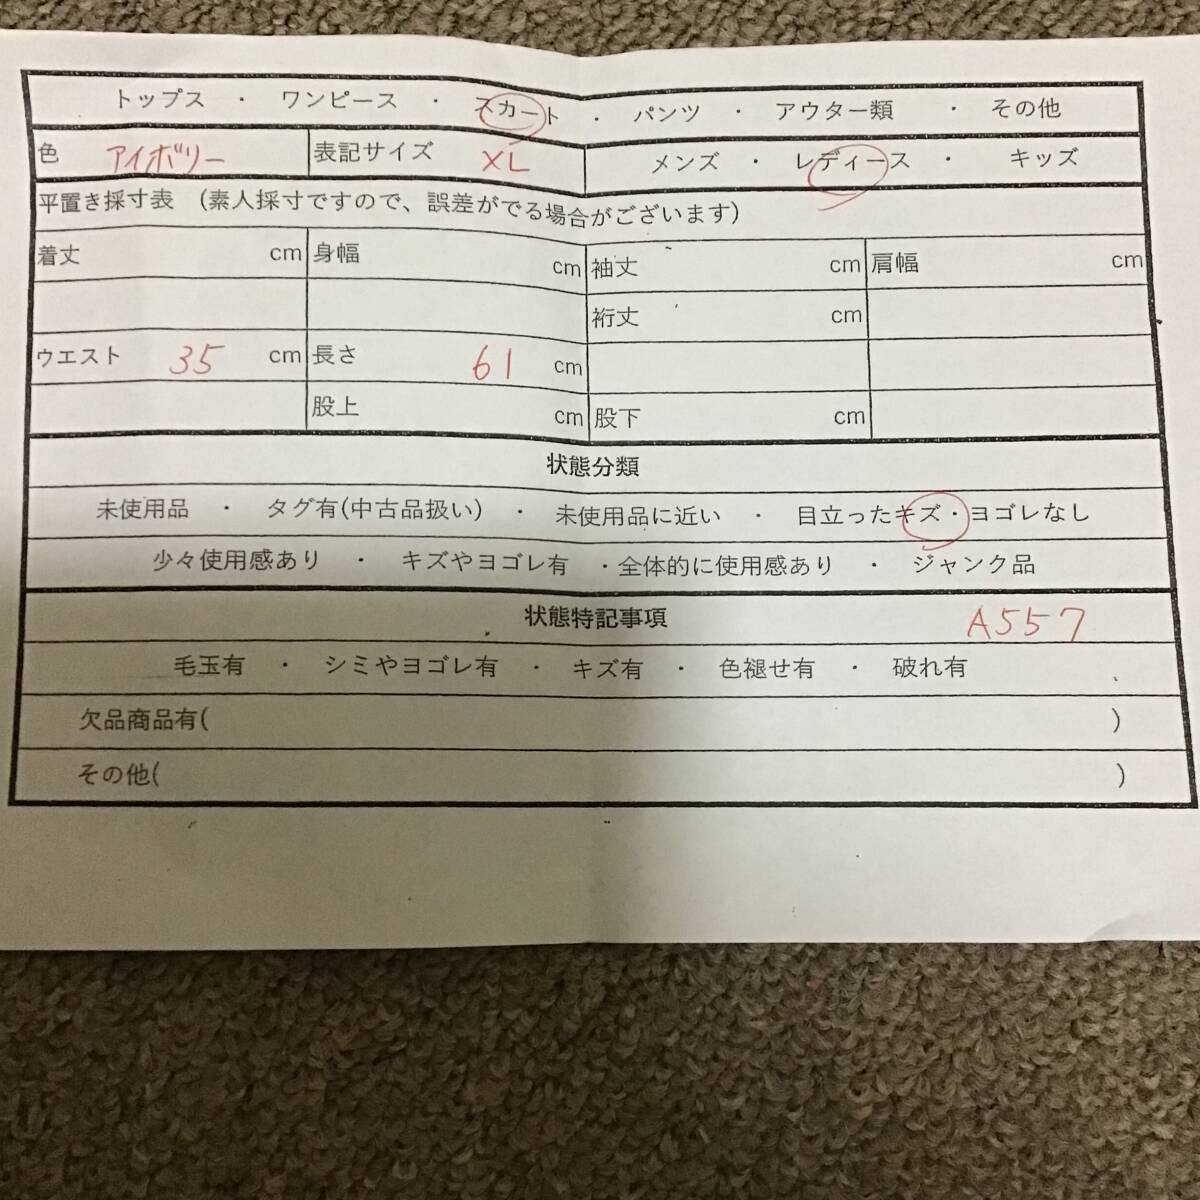 トップス ・ ワンピース ・ スカート ・ パンツ ・ アウター類 ・ その他
色 アイボリー 表記サイズ XL メンズ ・ レディース ・ キッズ
平置き採寸表 (素人採寸ですので、誤差がでる場合がございます)
着丈 cm 身幅 cm 袖丈 cm 肩幅 cm
裄丈 cm
ウエスト 35 cm 長さ 61 cm
股上 cm 股下 cm
状態分類
未使用品 ・ タグ有(中古品扱い) ・ 未使用品に近い ・ 目立ったキズ・ヨゴレなし
少々使用感あり ・ キズやヨゴレ有 ・全体的に使用感あり ・ ジャンク品
状態特記事項 A557
毛玉有 ・ シミやヨゴレ有 ・ キズ有 ・ 色褪せ有 ・ 破れ有
欠品商品有( )
その他( )